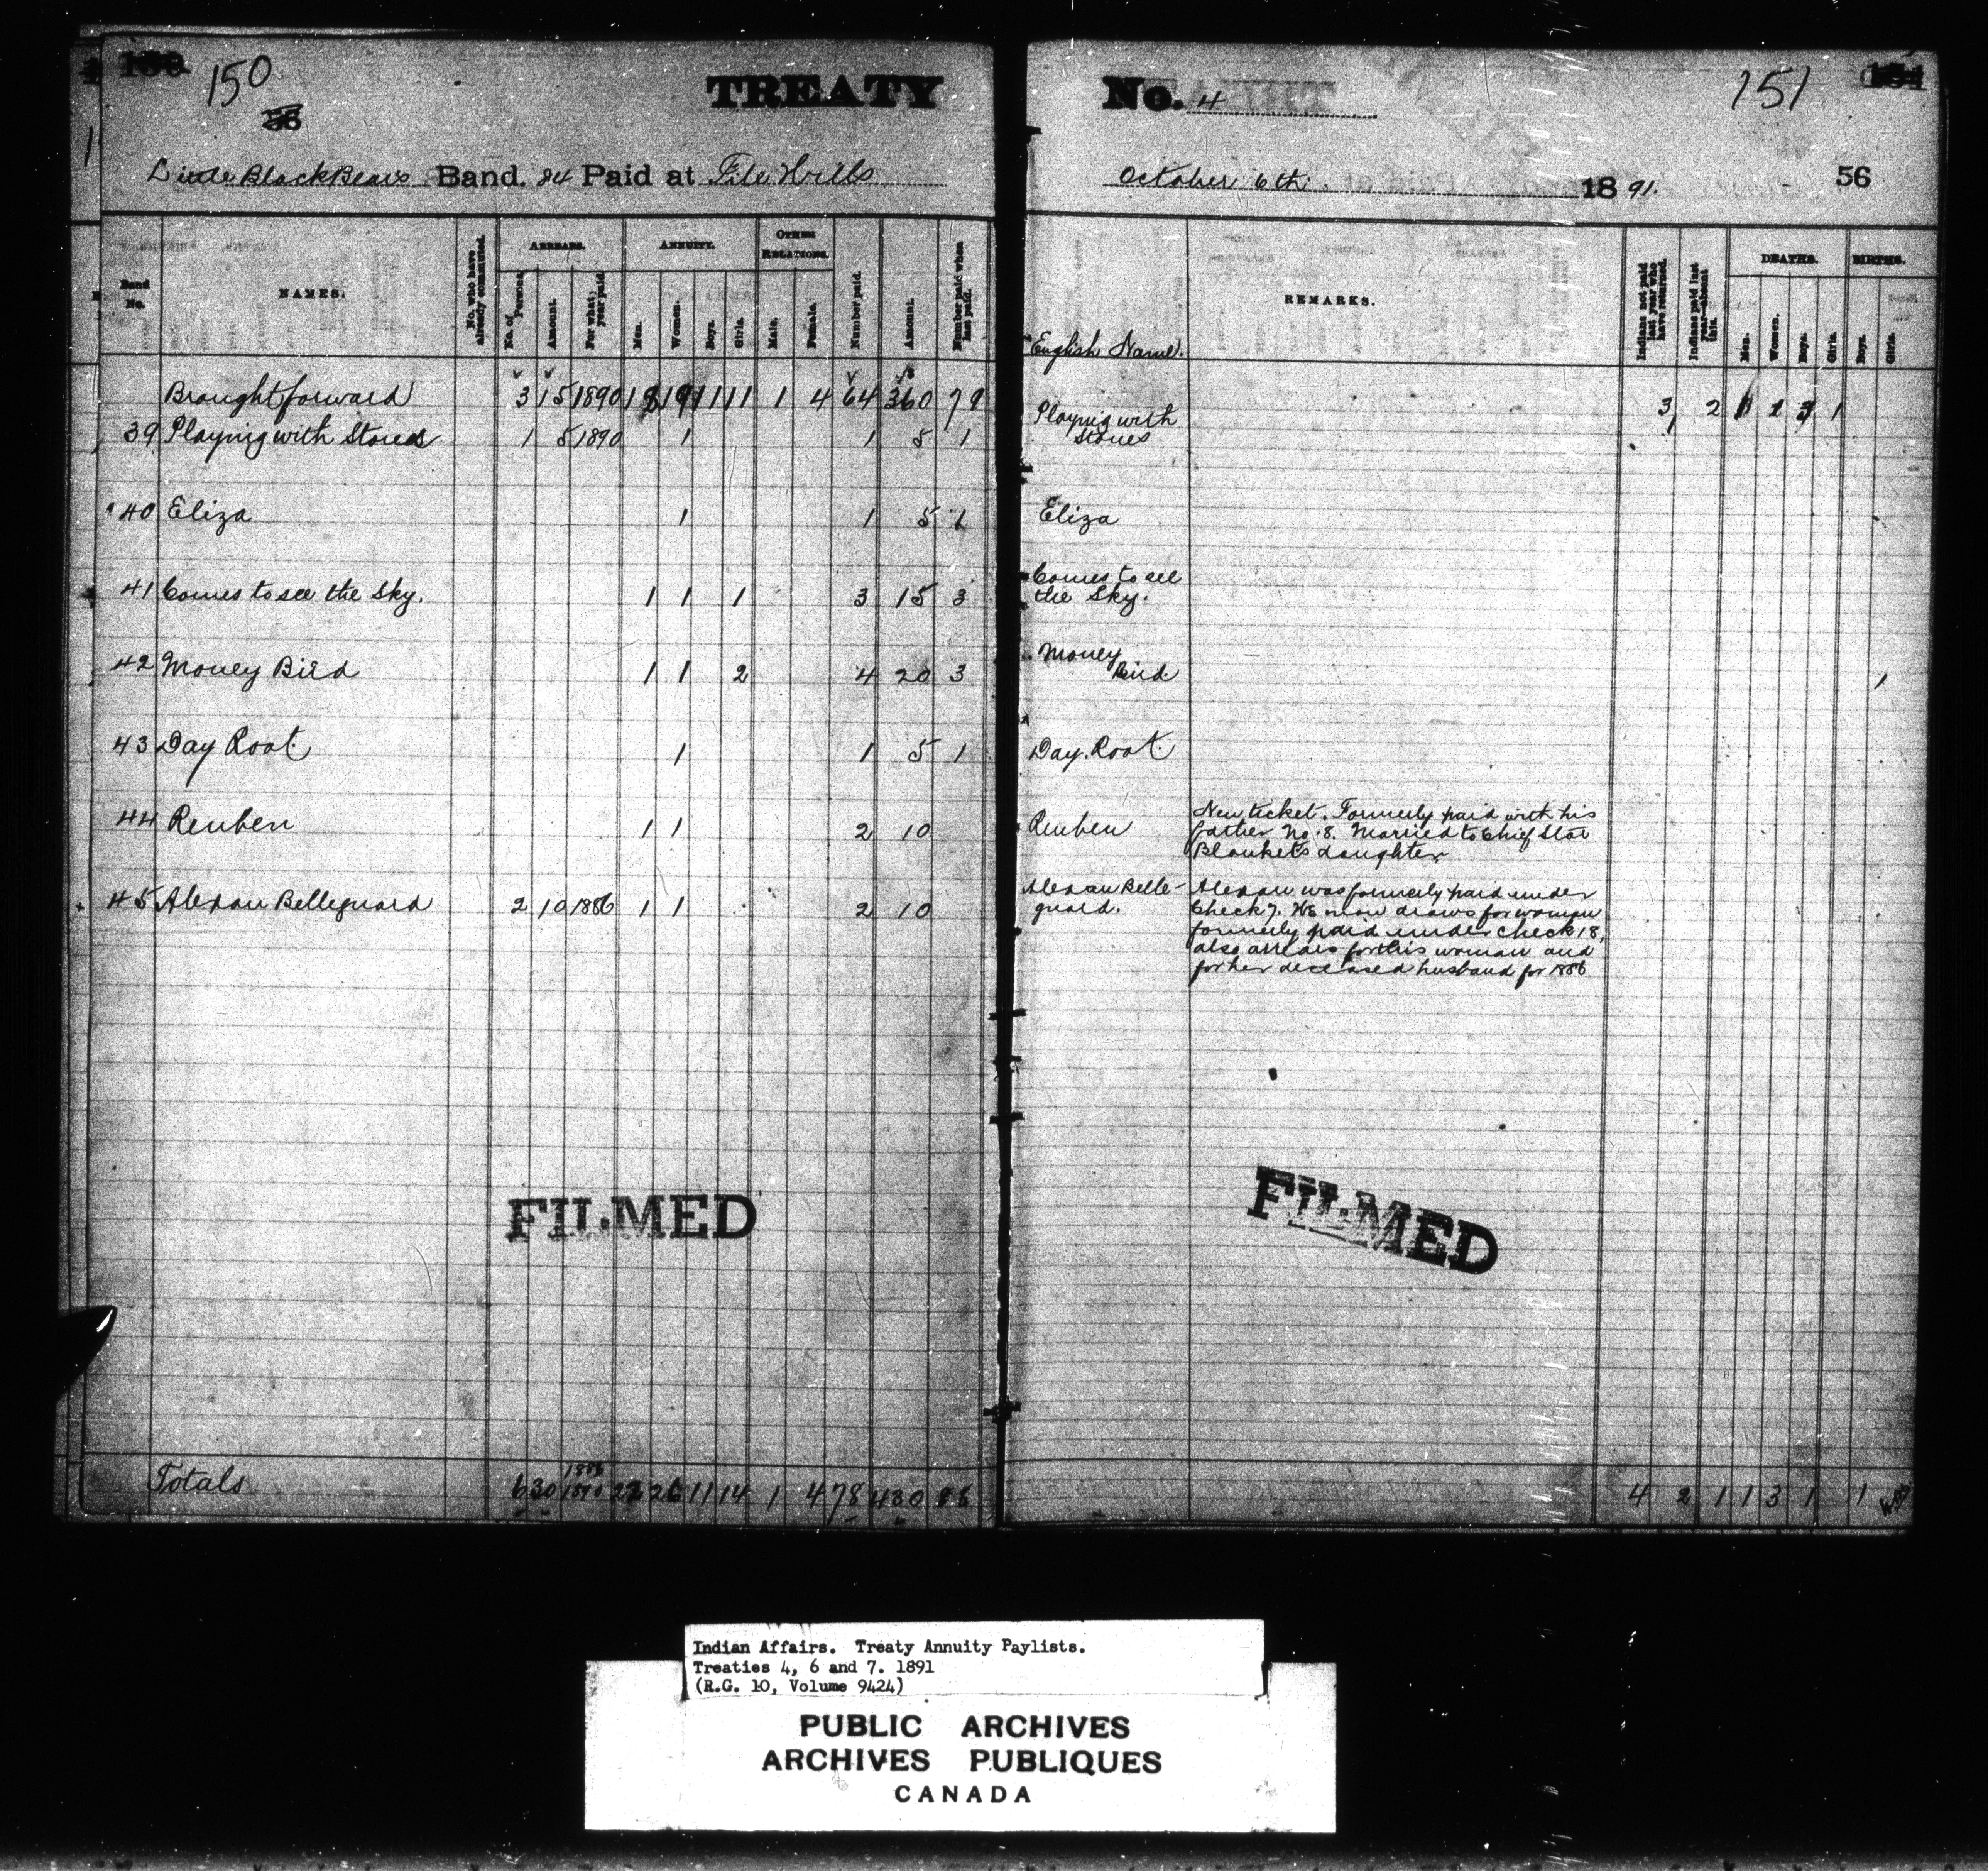 150
TREATY
Little Black Bears Band. 84 Paid at File Hills
Band No.
NAMES.
No. who have already commuted.
ARREARS.
No. of Persons.
Amount.
For what year paid.
ANNUITY.
Men.
Women.
Boys.
Girls.
OTHER RELATIONS.
Male.
Female.
Number paid.
Amount.
Number paid when last paid.
Brought forward 3 15 1890 18 19 11 11 1 4 64 360 79
39 Playing with Stones 1 5 1890 1 1 5 1
40 Eliza 1 1 5 1
41 Comes to see the Sky. 1 1 1 3 15 3
42 Money Bird 1 1 2 4 20 3
43 Day Root. 1 1 5 1
44 Reuben 1 1 2 10
45 Alexan Belleguard 2 10 1886 1 1 2 10
FILMED
Totals 6 30 1886 1890 26 11 14 1 4 78 430 88
No. 4
151
October 6th. 1891.
56
English Name.
REMARKS.
Indians not paid last year who have returned.
Indians paid last year—absent this.
DEATHS.
Men.
Women.
Boys.
Girls.
BIRTHS.
Boys.
Girls.
3 2 1
Playing with
Stones 1
Eliza
Comes to see
the Sky.
Money
Bird 1
Day. Root.
Reuben
New ticket. Formerly paid with his
father No. 8. Married to Chief Star
Blanket's daughter
Alexan Belle-
guard.
Alexan was formerly paid under
Check 7. He now draws for woman
formerly paid under check 18,
also arrears for this woman and
for her deceased husband for 1886
FILMED
4 2 1 1 3 1 1
Indian Affairs. Treaty Annuity Paylists.
Treaties 4, 6 and 7. 1891
(R.G. 10, Volume 9424)
PUBLIC ARCHIVES
ARCHIVES PUBLIQUES
CANADA